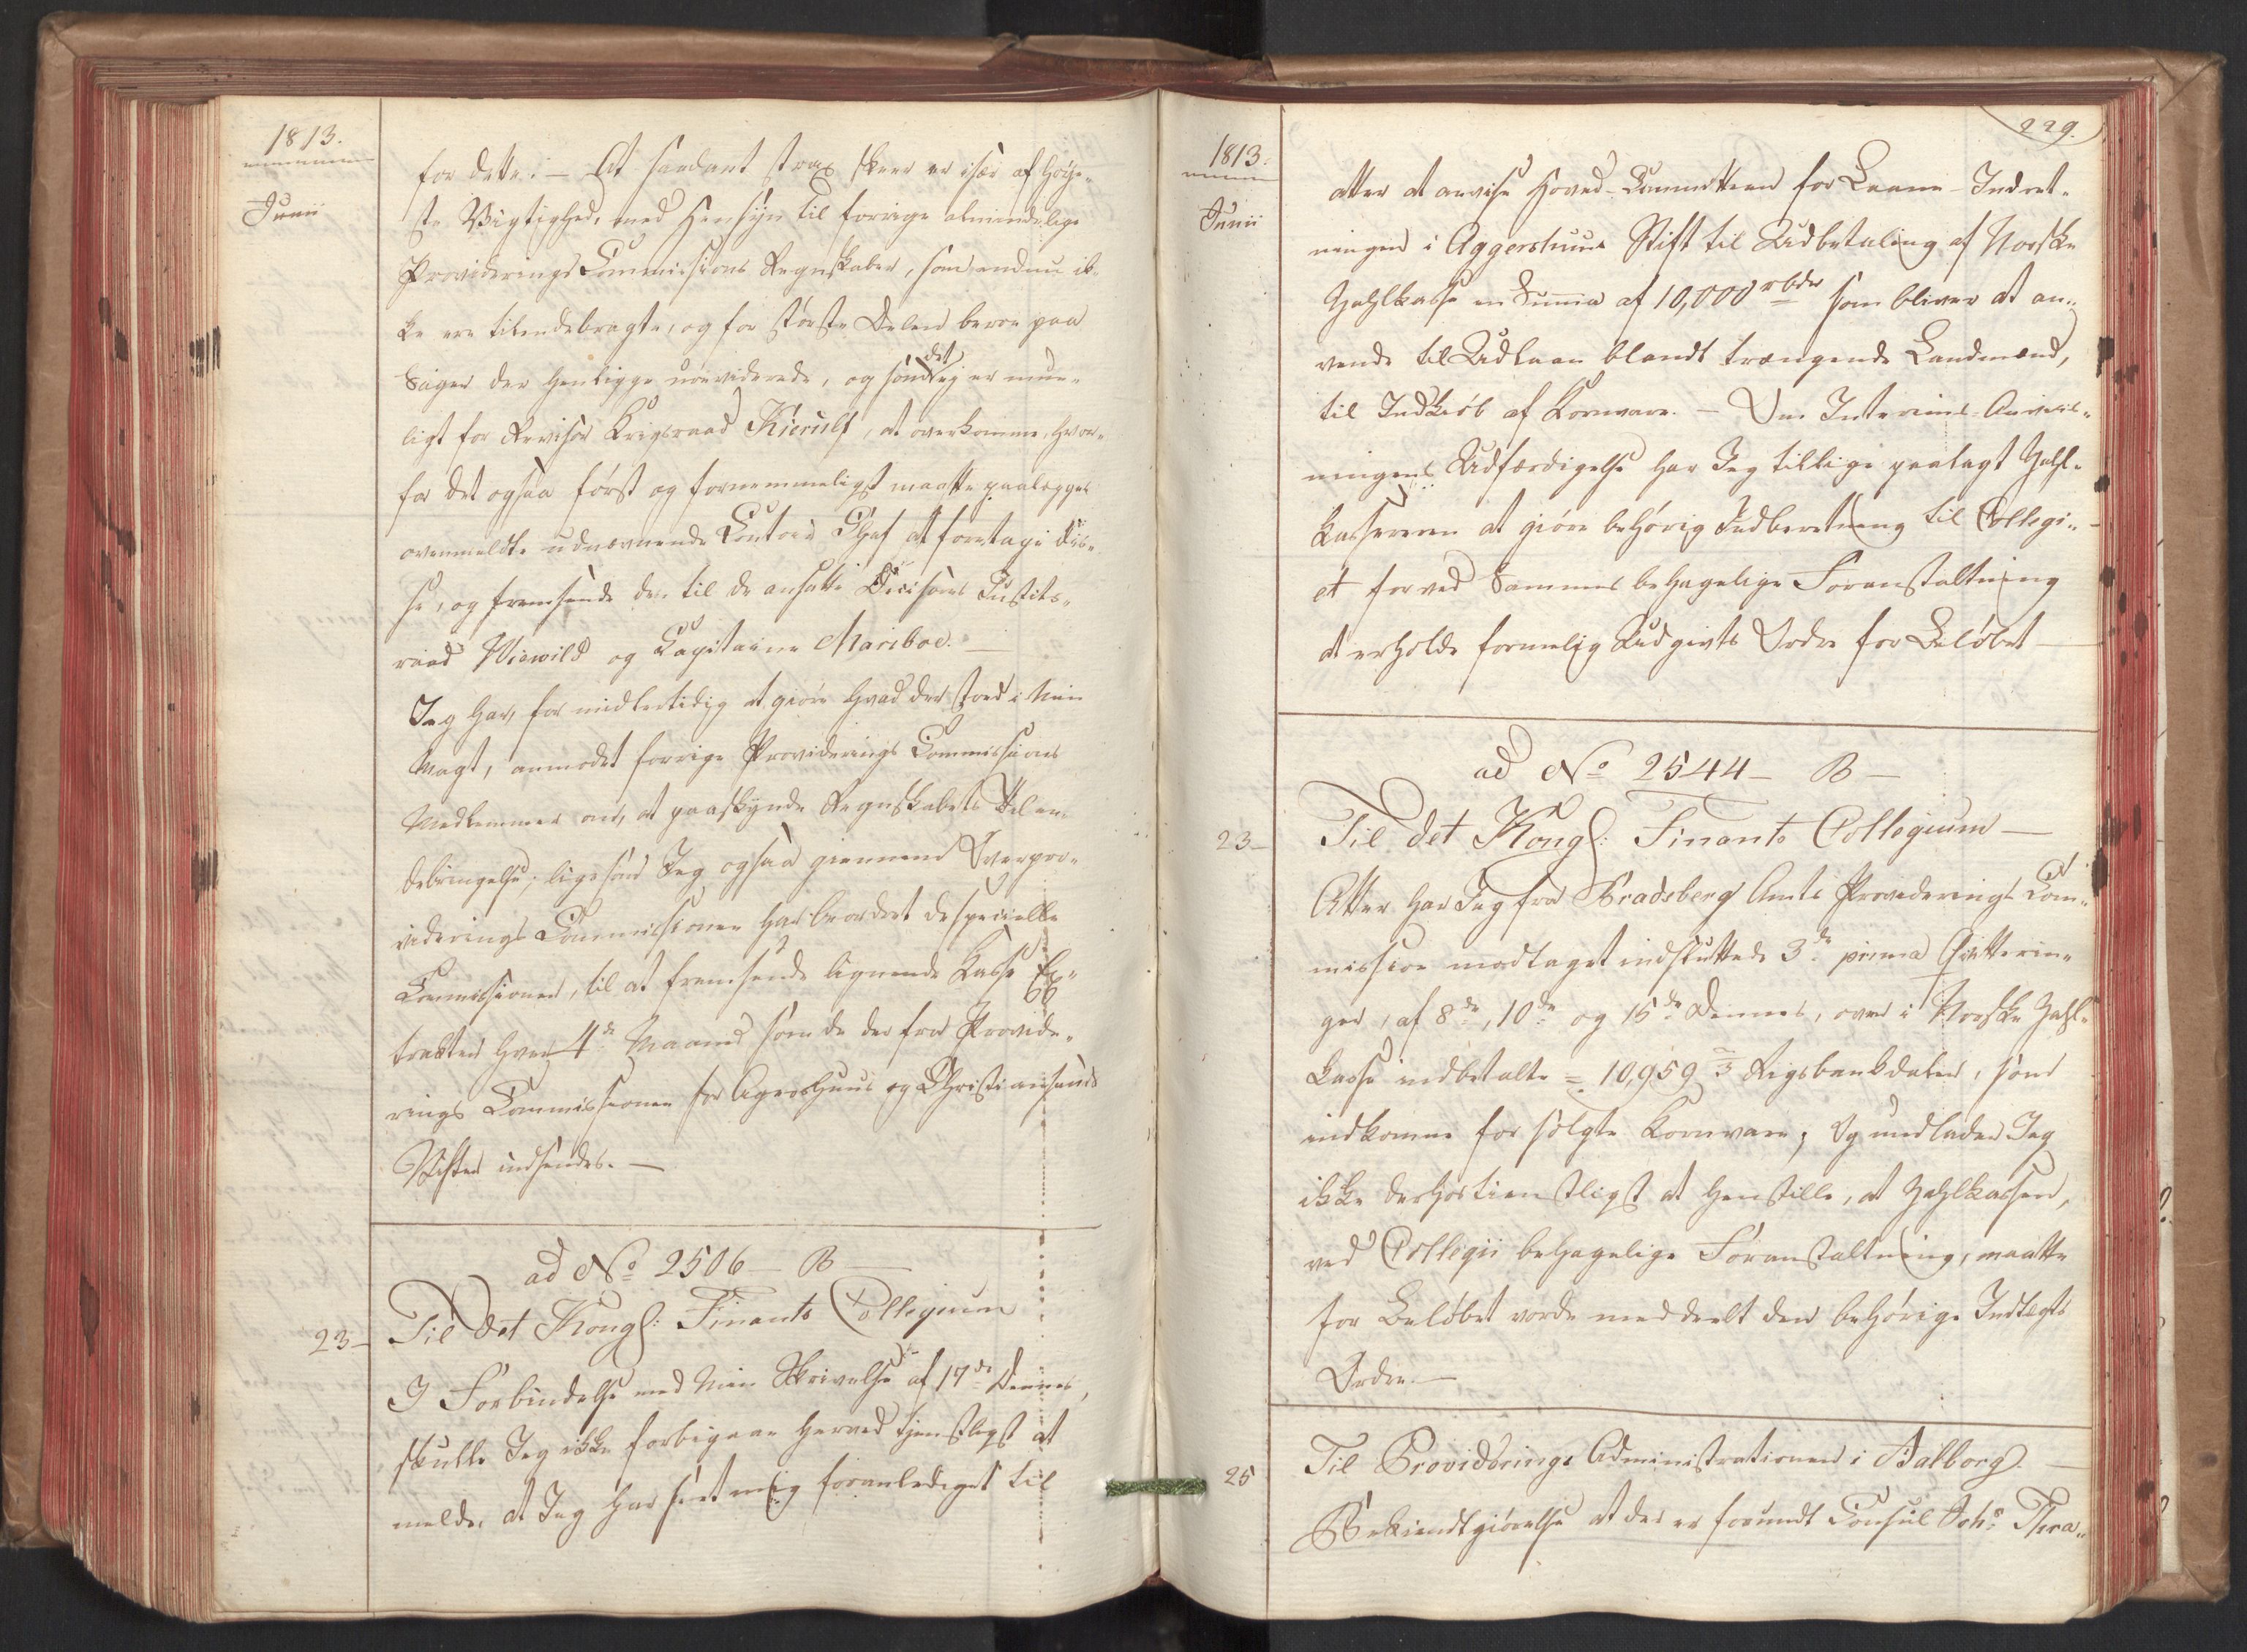 1813.
Junii
for dette. — At saadant strax skeer er især af Høye-
ste Vigtighed, med Hensyn til forrige almindelige
Provideringscommissions Regnskaber, som endnu ik-
ke ere tilendebragte, og for største Delen beroe paa
Sager der henligge ureviderede, og som det ej er mue-
ligt for Revisor Krigsraad Kierulf, at overkomme, hvor-
for det ogsaa først og fornemmeligst maatte paalægges
ovenmeldte udnævnende Contoir Chef at foretage dis-
se, og fremsende dem til de ansatte Decisorer Justits-
raad Wiewild og Capitaine Mariboe. —
Jeg har, for midlertidig at giøre hvad der stod i Min
Magt, anmodet forrige Providerings Commissions
Medlemmer om, at paaskynde Regnskabets Tilen-
debringelse; ligesom Jeg ogsaa giennem Overpro-
viderings Commissionen har beordret de specielle
Commissioner, til at fremsende lignende Kasse Ex-
tracter hver 4de Maaned som de der fra Provide-
rings Commissionen for Agershuus og Christiansands
Stifter indsendes. —
ad No 2506 — B —
23 — Til det Kongl: Finants Collegium
I Forbindelse med Min Skrivelse af 17de Dennes,
skulle Jeg ikke forbigaae herved tjenstligst at
melde, at Jeg har seet mig foranlediget til
229.
1813.
Junii
atter at anvise Hoved-Committeen for Laane-Indret-
ningen i Aggershuus Stift til Udbetaling af Norske
Zahlkasse en Summa af 10,000 rbdr som bliver at an-
vende til Udlaan blandt trængende Landmænd,
til Indkiøb af Kornvare. — Om Interims-Anviis-
ningens Udfærdigelse har Jeg tillige paalagt Zahl-
kassereren at giøre behørig Indberetning til Collegi-
et for ved Sammes behagelige Foranstaltning
at erholde formelig Udgivts Ordre for Beløbet —
ad No 2544 — B —
23 — Til det Kongl: Finants Collegium —
Atter har Jeg fra Bradsberg Amts Providerings Com-
mission modtaget indsluttede 3de prima Qvitterin-
ger, af 8de, 10de og 15de Dennes, over i Norske Zahl-
kasse indbetalte = 10,959 3 Rigsbankdaler, som
indkomne for solgte Kornvare; Og undlader Jeg
ikke derhos tienstligst at henstille, at Zahlkassen,
ved Collegii behagelige Foranstaltning, maatte
for Beløbet vorde meddeelt den behørige Indtægts
Ordre. —
25 Til Providerings Administrationen i Aalborg. —
Bekiendtgiørelse at der er forundt Consul Johs Thra-